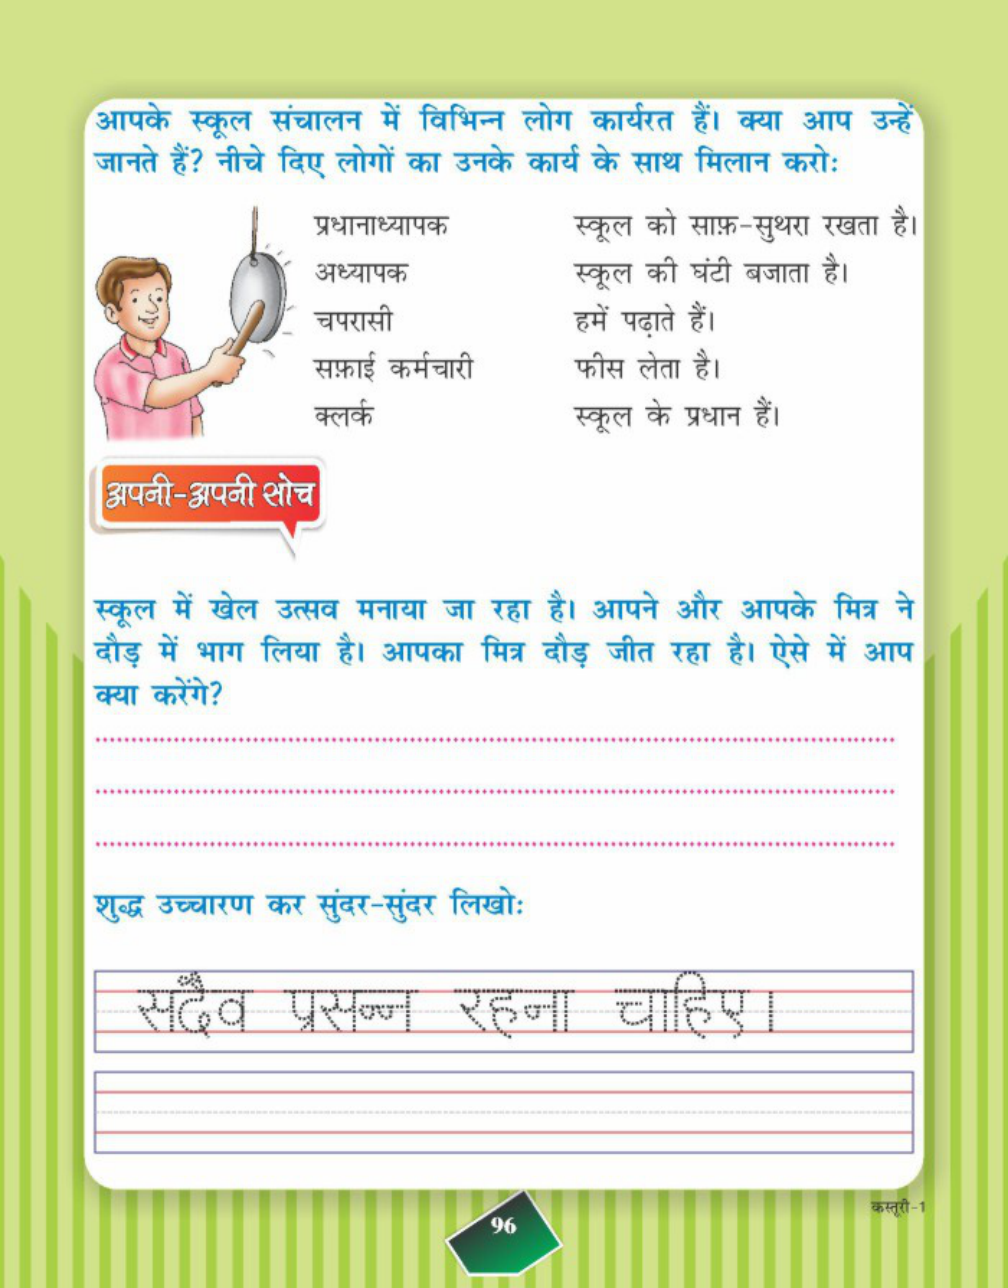 आपके स्कूल संचालन में विभिन्न लोग कार्यरत हैं। क्या आप उन्हें
जानते हैं? नीचे दिए लोगों का उनके कार्य के साथ मिलान करो:
प्रधानाध्यापक स्कूल को साफ़-सुथरा रखता है।
अध्यापक स्कूल की घंटी बजाता है।
चपरासी हमें पढ़ाते हैं।
सफ़ाई कर्मचारी फीस लेता है।
क्लर्क स्कूल के प्रधान हैं।
अपनी-अपनी सोच
स्कूल में खेल उत्सव मनाया जा रहा है। आपने और आपके मित्र ने
दौड़ में भाग लिया है। आपका मित्र दौड़ जीत रहा है। ऐसे में आप
क्या करेंगे?
शुद्ध उच्चारण कर सुंदर-सुंदर लिखो:
सदैव प्रसन्न रहना चाहिए।
कस्तूरी-1
96